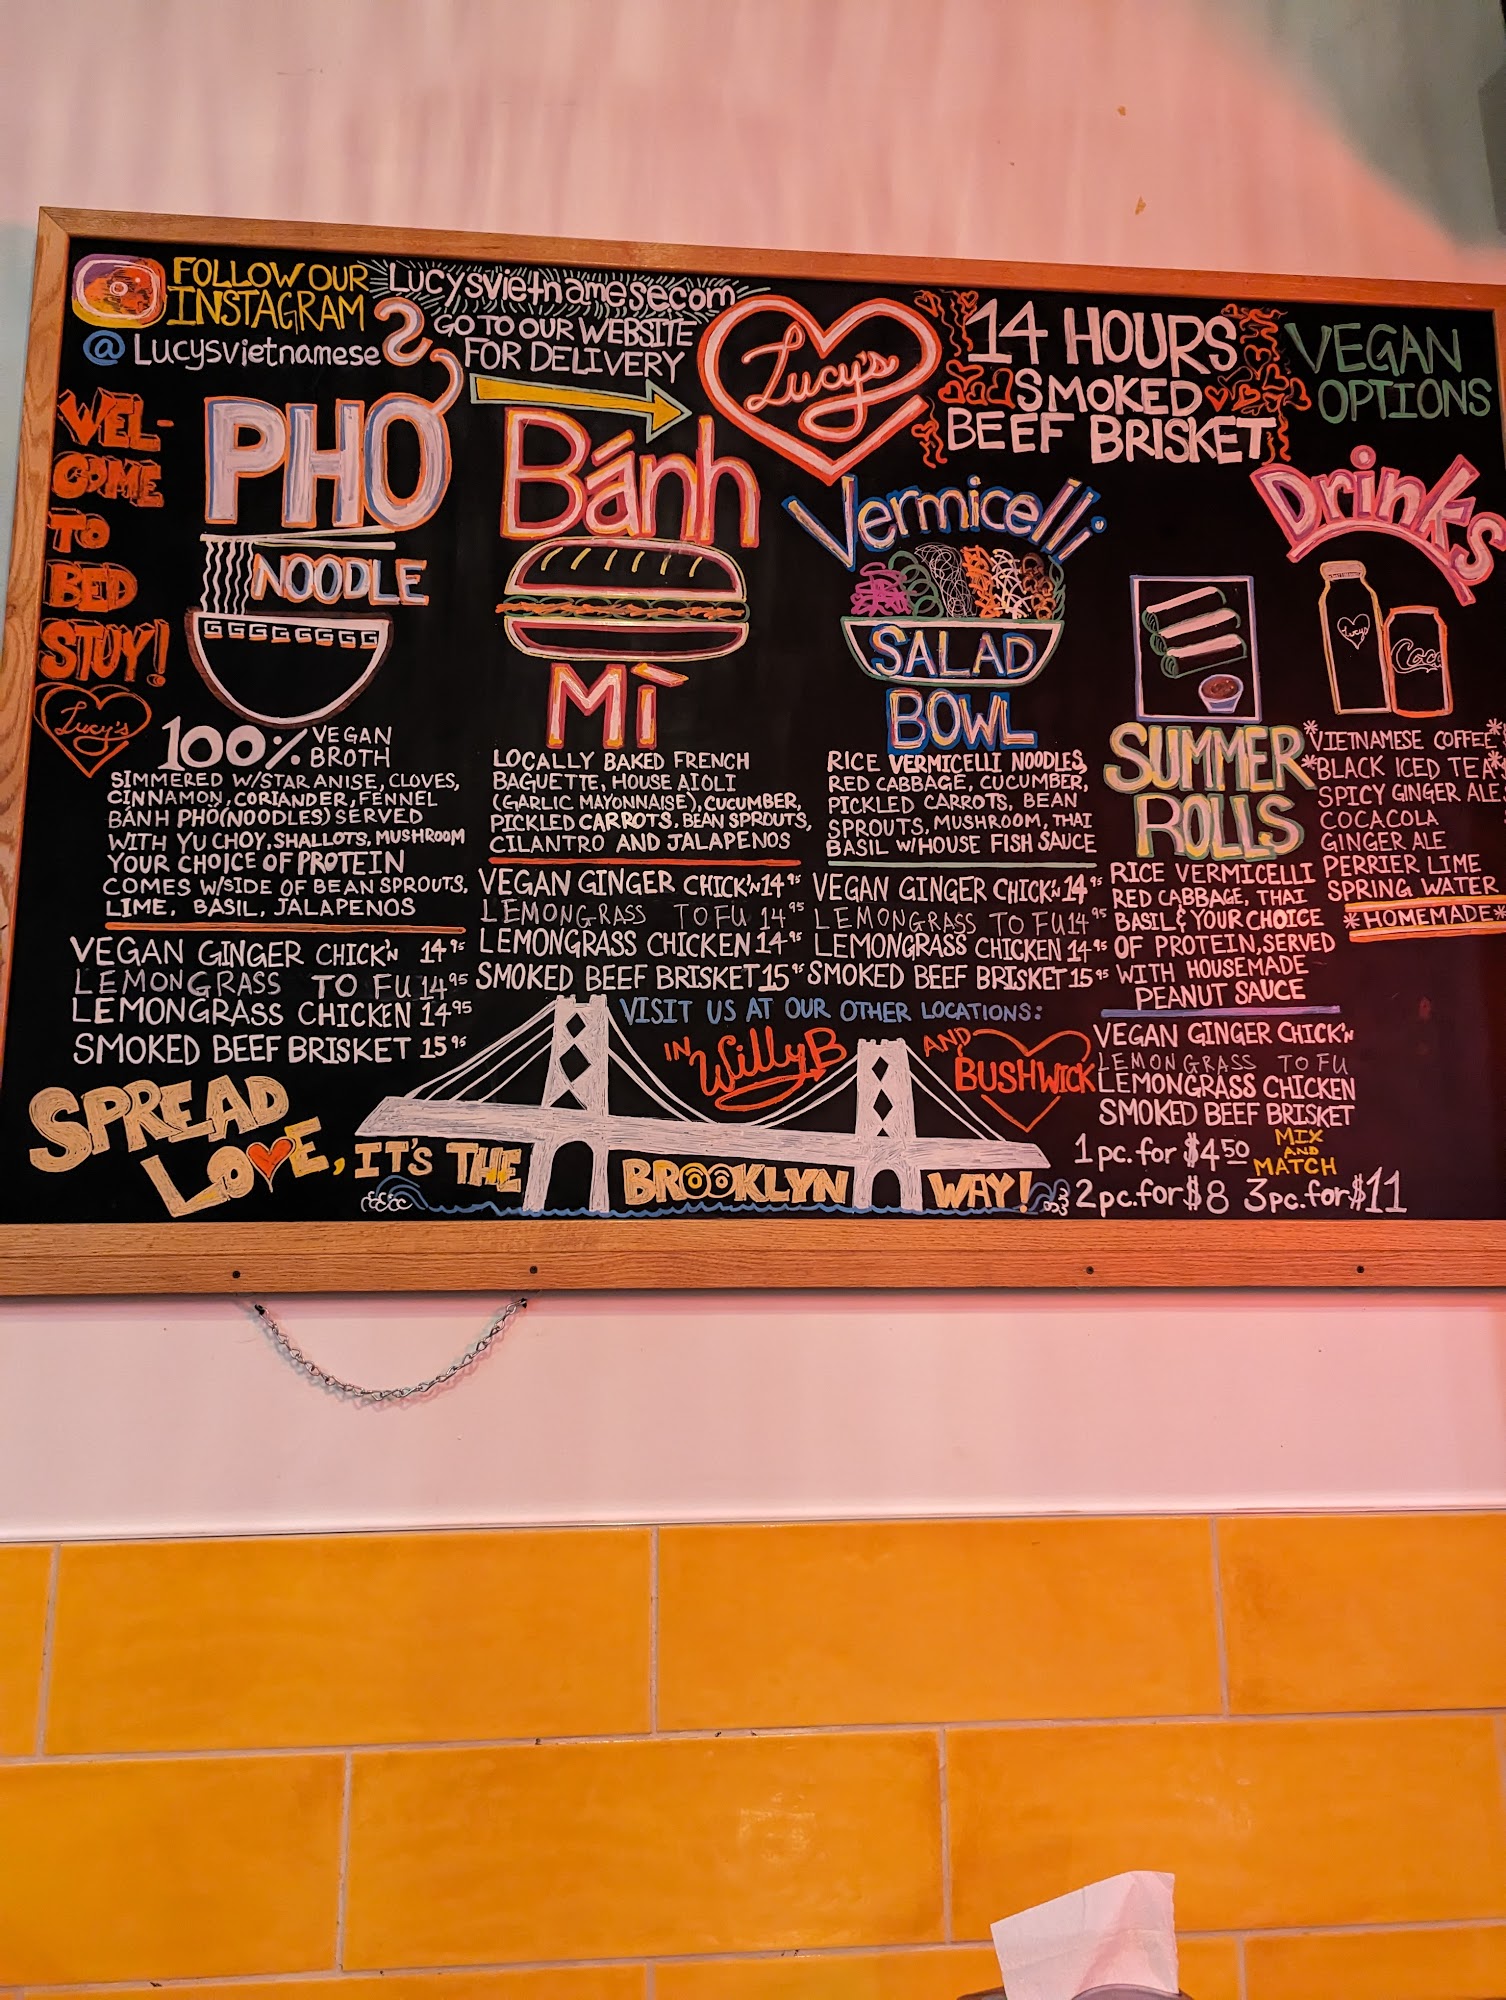 FOLLOW OUR
INSTAGRAM
@Lucysvietnamese
Lucysvietnamese.com
GO TO OUR WEBSITE
FOR DELIVERY
Lucy's
14 HOURS
SMOKED
BEEF BRISKET
VEGAN
OPTIONS
WEL-
COME
TO
BED
STUY!
Lucy's
PHO
NOODLE
100% VEGAN
BROTH
SIMMERED W/STAR ANISE, CLOVES,
CINNAMON, CORIANDER, FENNEL
BANH PHO(NOODLES) SERVED
WITH YU CHOY, SHALLOTS, MUSHROOM
YOUR CHOICE OF PROTEIN
COMES W/SIDE OF BEAN SPROUTS,
LIME, BASIL, JALAPENOS
VEGAN GINGER CHICK'N 14.95
LEMONGRASS TO FU 14.95
LEMONGRASS CHICKEN 14.95
SMOKED BEEF BRISKET 15.95
Bánh
Mì
LOCALLY BAKED FRENCH
BAGUETTE, HOUSE AIOLI
(GARLIC MAYONNAISE), CUCUMBER,
PICKLED CARROTS, BEAN SPROUTS,
CILANTRO AND JALAPENOS
VEGAN GINGER CHICK'N 14.95
LEMONGRASS TOFU 14.95
LEMONGRASS CHICKEN 14.95
SMOKED BEEF BRISKET 15.95
Vermicelli
SALAD
BOWL
RICE VERMICELLI NOODLES,
RED CABBAGE, CUCUMBER,
PICKLED CARROTS, BEAN
SPROUTS, MUSHROOM, THAI
BASIL W/HOUSE FISH SAUCE
VEGAN GINGER CHICK'N 14.95
LEMONGRASS TO FU 14.95
LEMONGRASS CHICKEN 14.95
SMOKED BEEF BRISKET 15.95
SUMMER
ROLLS
RICE VERMICELLI
RED CABBAGE, THAI
BASIL & YOUR CHOICE
OF PROTEIN, SERVED
WITH HOUSEMADE
PEANUT SAUCE
VEGAN GINGER CHICK'N
LEMONGRASS TO FU
LEMONGRASS CHICKEN
SMOKED BEEF BRISKET
1 pc. for $4.50 MIX
AND
MATCH
2 pc. for $8 3 pc. for $11
Drinks
Lucy's
Coca
*VIETNAMESE COFFEE*
*BLACK ICED TEA*
SPICY GINGER ALE
COCA COLA
GINGER ALE
PERRIER LIME
SPRING WATER
*HOMEMADE*
VISIT US AT OUR OTHER LOCATIONS:
IN WillyB AND BUSHWICK
SPREAD
LOVE, IT'S THE BROOKLYN WAY!